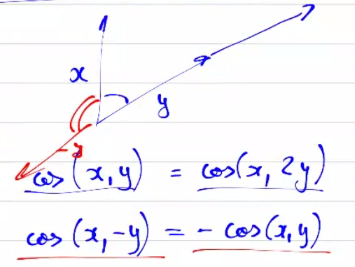 x
y
-y
cos(x, y) = cos(x, 2y)
cos(x, -y) = - cos(x, y)